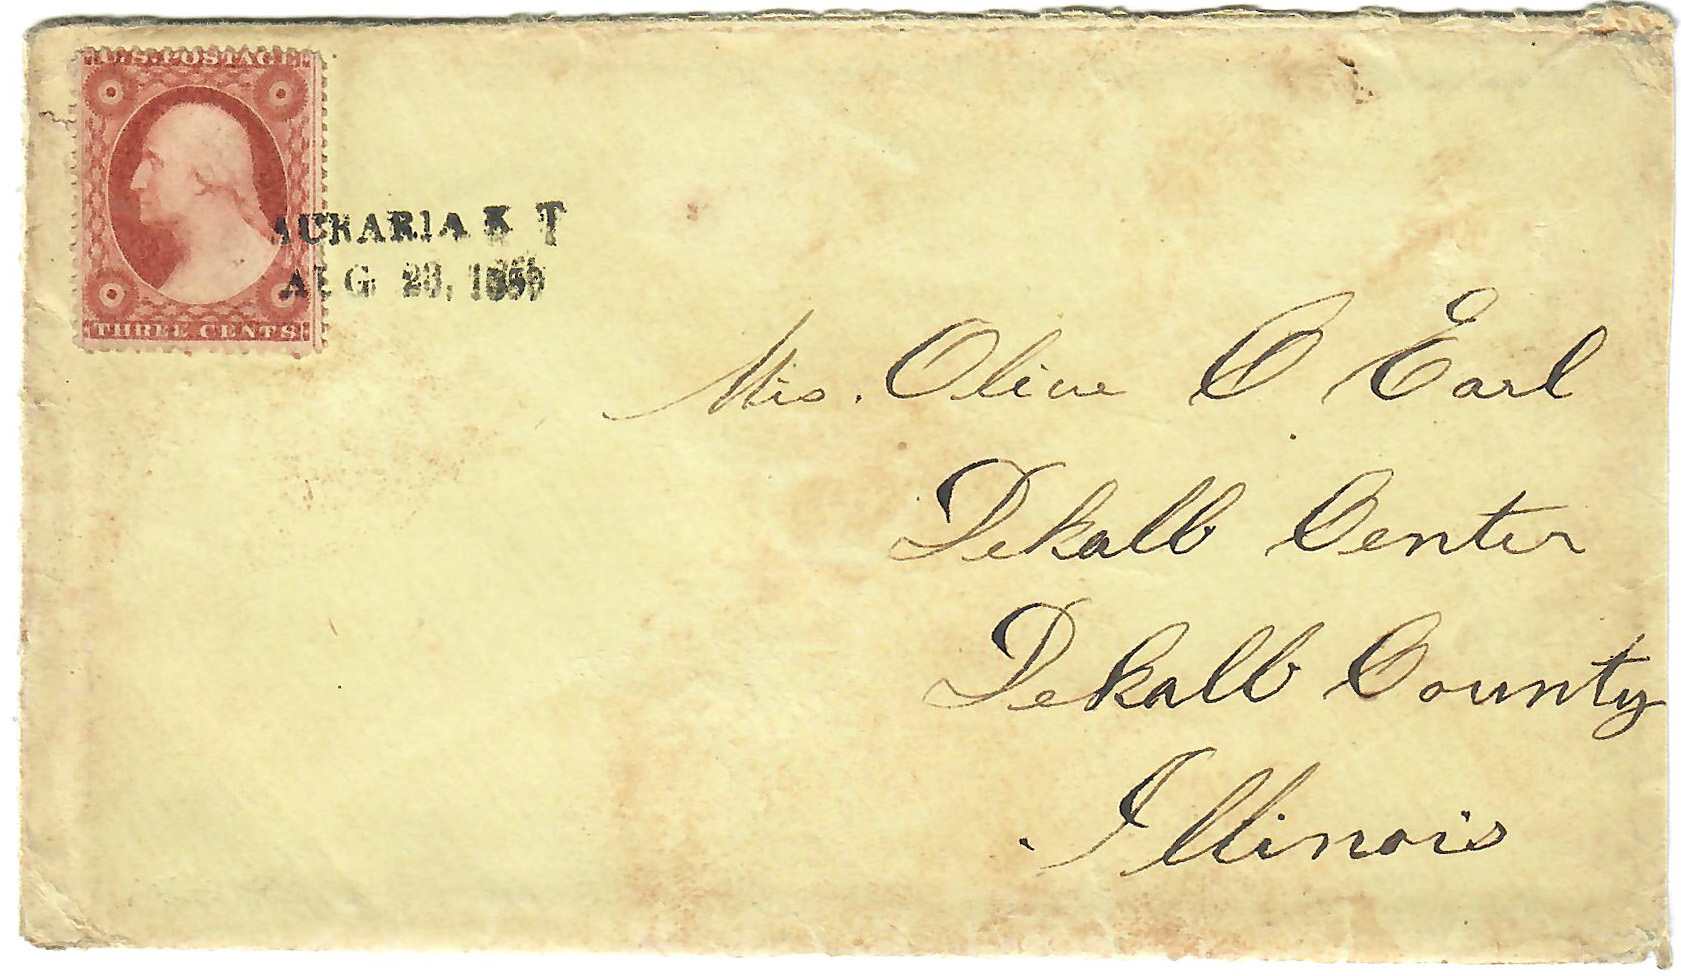 U.S. POSTAGE
THREE CENTS
AURARIA K T
AUG 23, 1859
Mrs. Olive C Earl
Dekalb Center
Dekalb County
Illinois